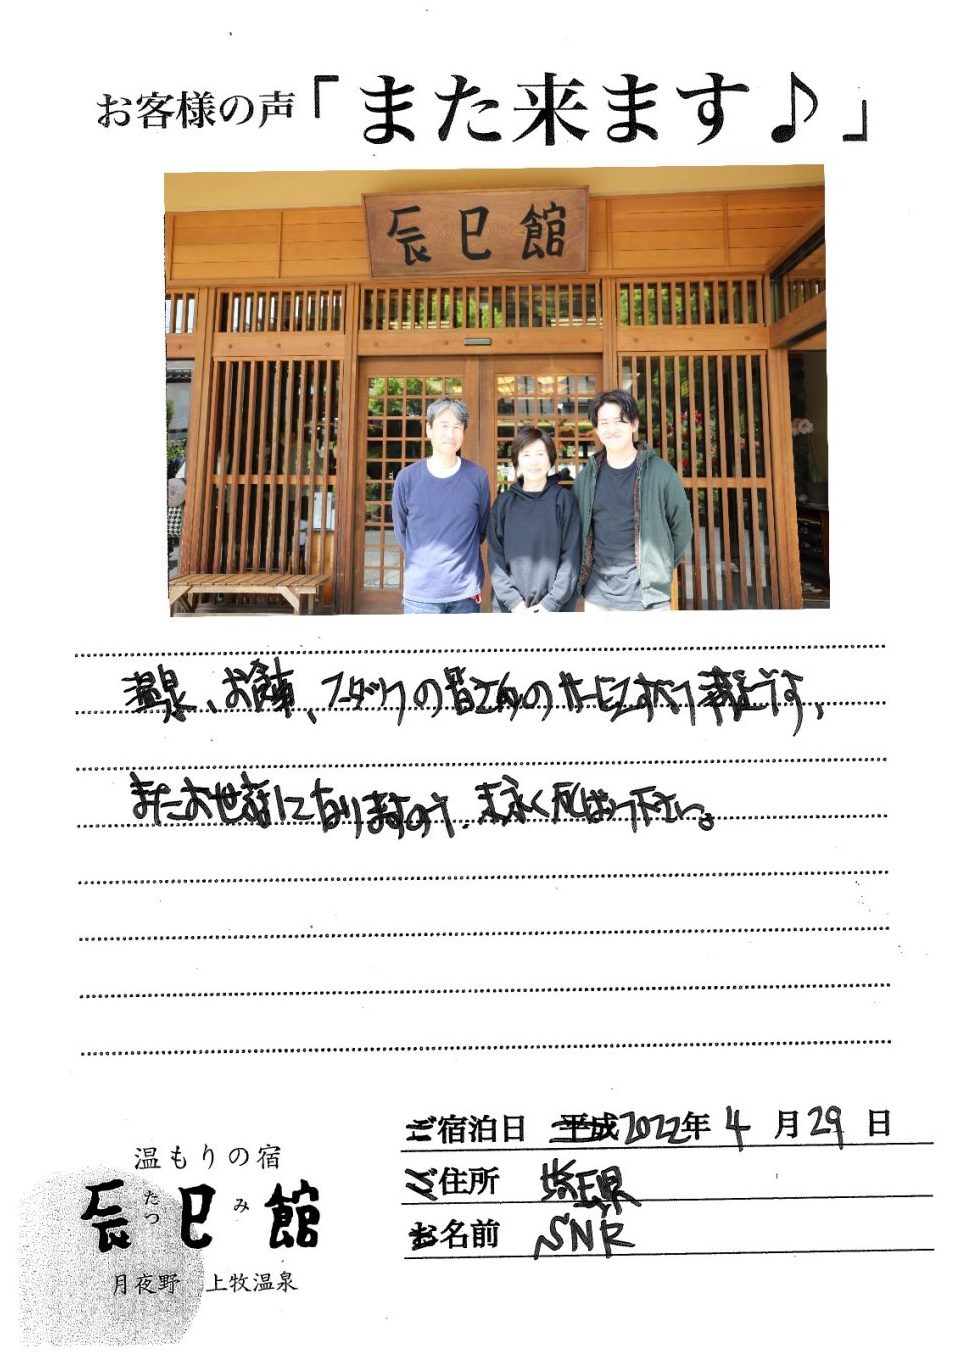 お客様の声「また来ます♪」
辰巳館
温泉、お食事、スタッフの皆さまのサービスすべて満足です。
またお世話になりますので、末永く頑ばって下さい。
ご宿泊日 平成2022年 4月29日
ご住所 埼玉県
お名前 SNR
温もりの宿
辰巳館
たつ み
月夜野 上牧温泉